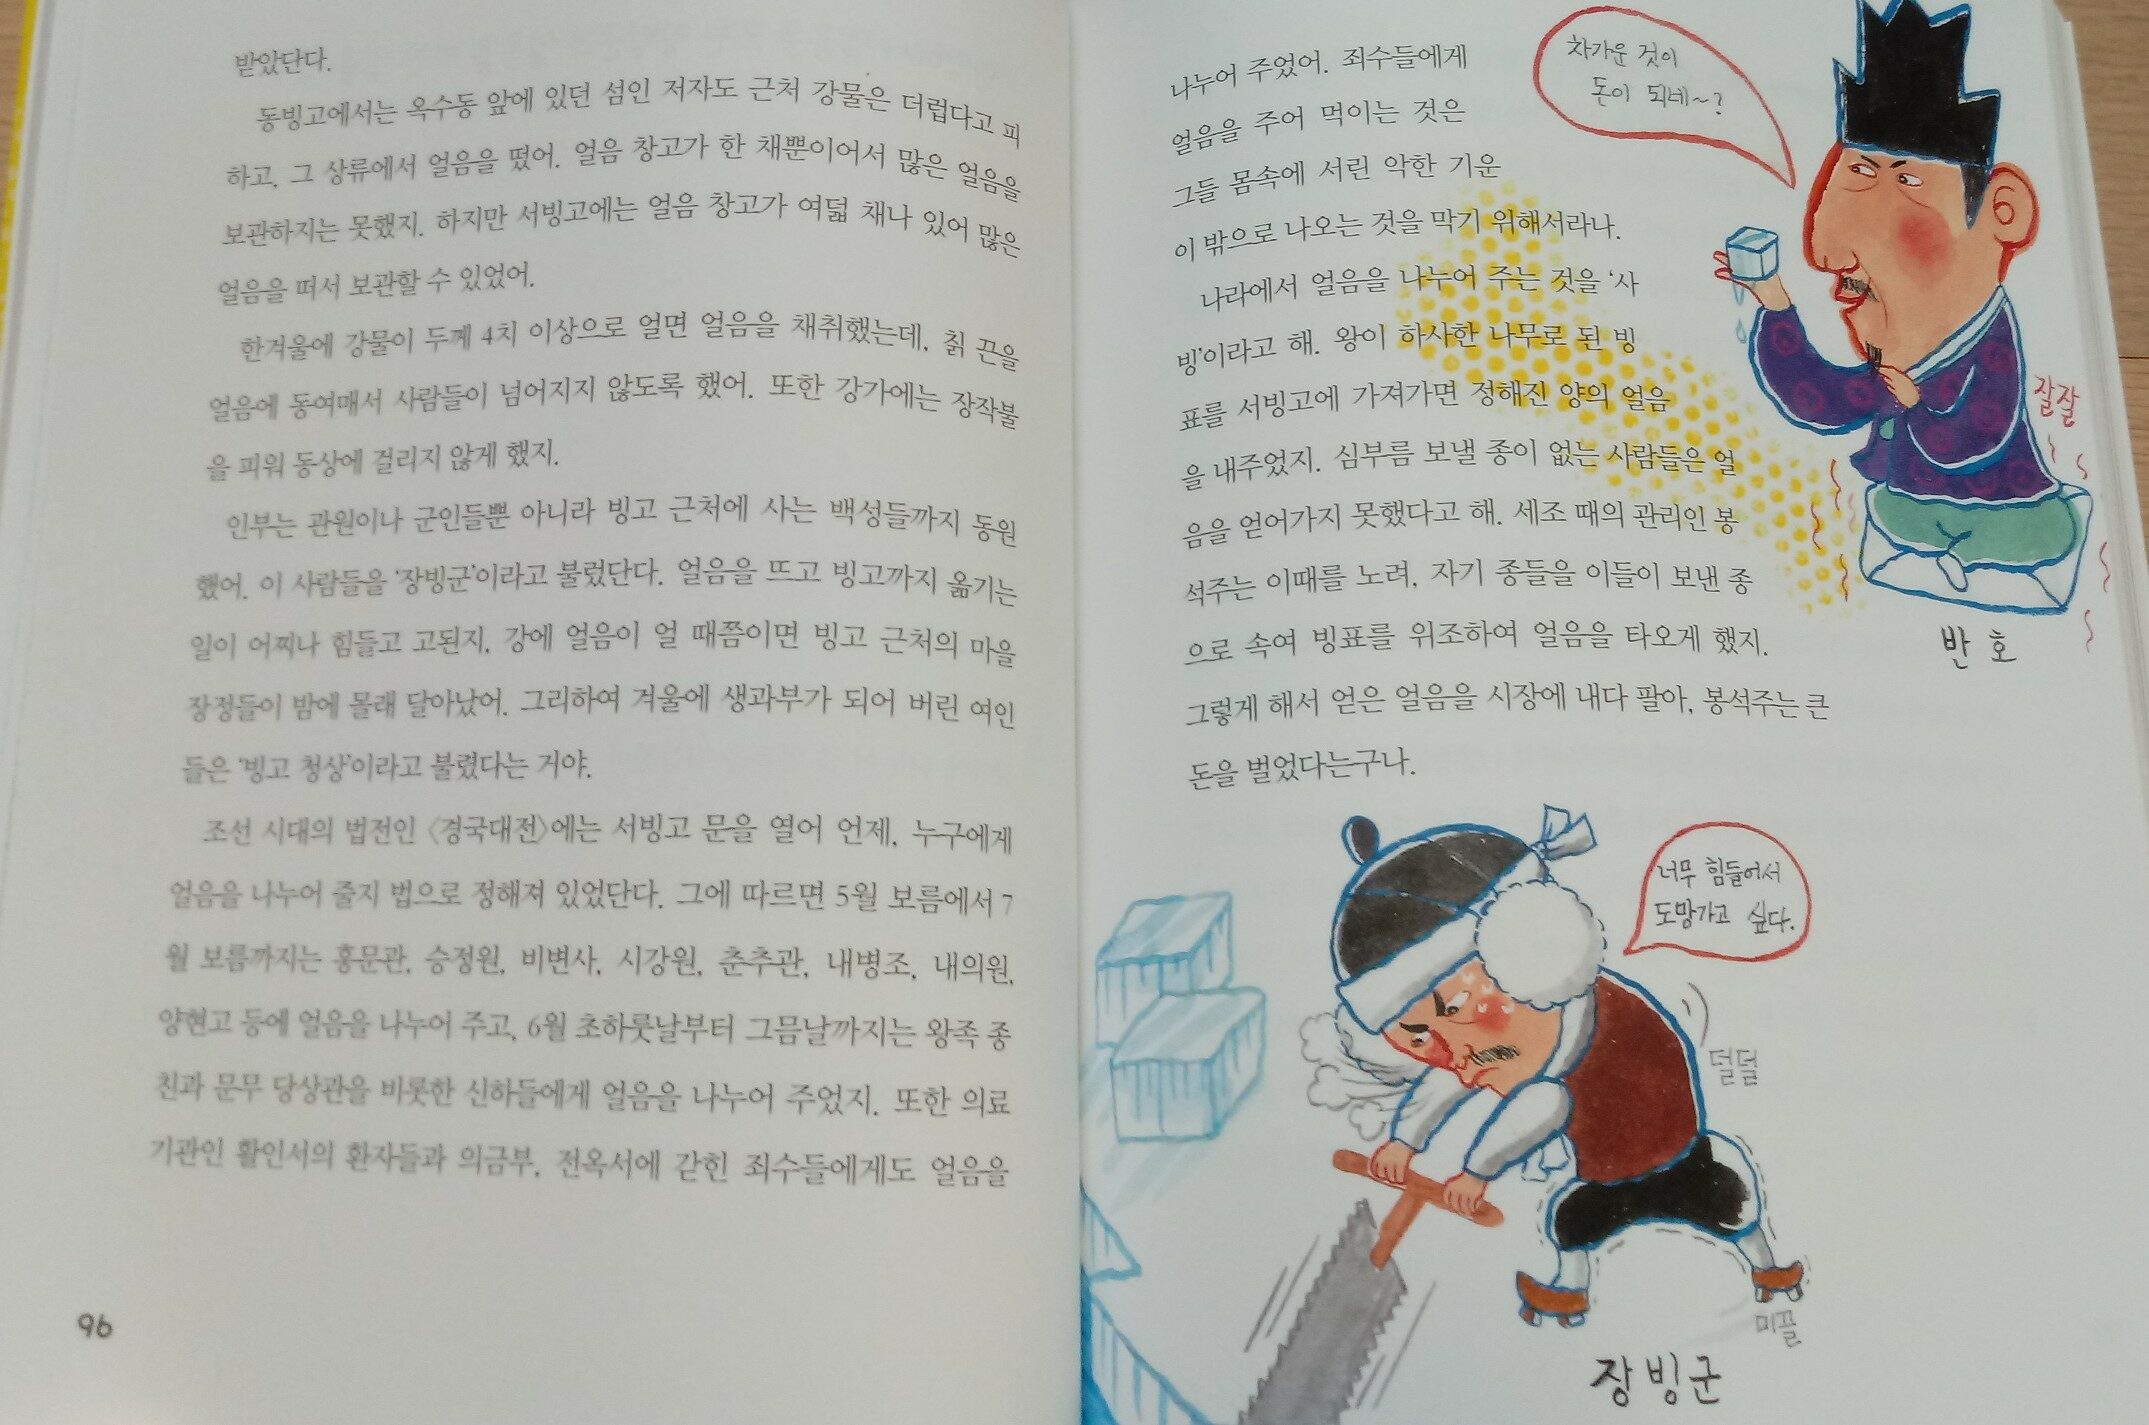 받았단다.
동빙고에서는 옥수동 앞에 있던 섬인 저자도 근처 강물은 더럽다고 피
하고, 그 상류에서 얼음을 떴어. 얼음 창고가 한 채뿐이어서 많은 얼음을
보관하지는 못했지. 하지만 서빙고에는 얼음 창고가 여덟 채나 있어 많은
얼음을 떠서 보관할 수 있었어.
한겨울에 강물이 두께 4치 이상으로 얼면 얼음을 채취했는데, 칡 끈을
얼음에 동여매서 사람들이 넘어지지 않도록 했어. 또한 강가에는 장작불
을 피워 동상에 걸리지 않게 했지.
인부는 관원이나 군인들뿐 아니라 빙고 근처에 사는 백성들까지 동원
했어. 이 사람들을 '장빙군'이라고 불렀단다. 얼음을 뜨고 빙고까지 옮기는
일이 어찌나 힘들고 고된지, 강에 얼음이 얼 때쯤이면 빙고 근처의 마을
장정들이 밤에 몰래 달아났어. 그리하여 겨울에 생과부가 되어 버린 여인
들은 '빙고 청상'이라고 불렸다는 거야.
조선 시대의 법전인 〈경국대전〉에는 서빙고 문을 열어 언제, 누구에게
얼음을 나누어 줄지 법으로 정해져 있었단다. 그에 따르면 5월 보름에서 7
월 보름까지는 홍문관, 승정원, 비변사, 시강원, 춘추관, 내병조, 내의원,
양현고 등에 얼음을 나누어 주고, 6월 초하룻날부터 그믐날까지는 왕족 종
친과 문무 당상관을 비롯한 신하들에게 얼음을 나누어 주었지. 또한 의료
기관인 활인서의 환자들과 의금부, 전옥서에 갇힌 죄수들에게도 얼음을
96
나누어 주었어. 죄수들에게
얼음을 주어 먹이는 것은
그들 몸속에 서린 악한 기운
이 밖으로 나오는 것을 막기 위해서라나.
나라에서 얼음을 나누어 주는 것을 '사
빙'이라고 해. 왕이 하사한 나무로 된 빙
표를 서빙고에 가져가면 정해진 양의 얼음
을 내주었지. 심부름 보낼 종이 없는 사람들은 얼
음을 얻어가지 못했다고 해. 세조 때의 관리인 봉
석주는 이때를 노려, 자기 종들을 이들이 보낸 종
으로 속여 빙표를 위조하여 얼음을 타오게 했지.
그렇게 해서 얻은 얼음을 시장에 내다 팔아, 봉석주는 큰
돈을 벌었다는구나.
차가운 것이
돈이 되네~?
잘잘
반호
너무 힘들어서
도망가고 싶다.
덜덜
미끌
장빙군